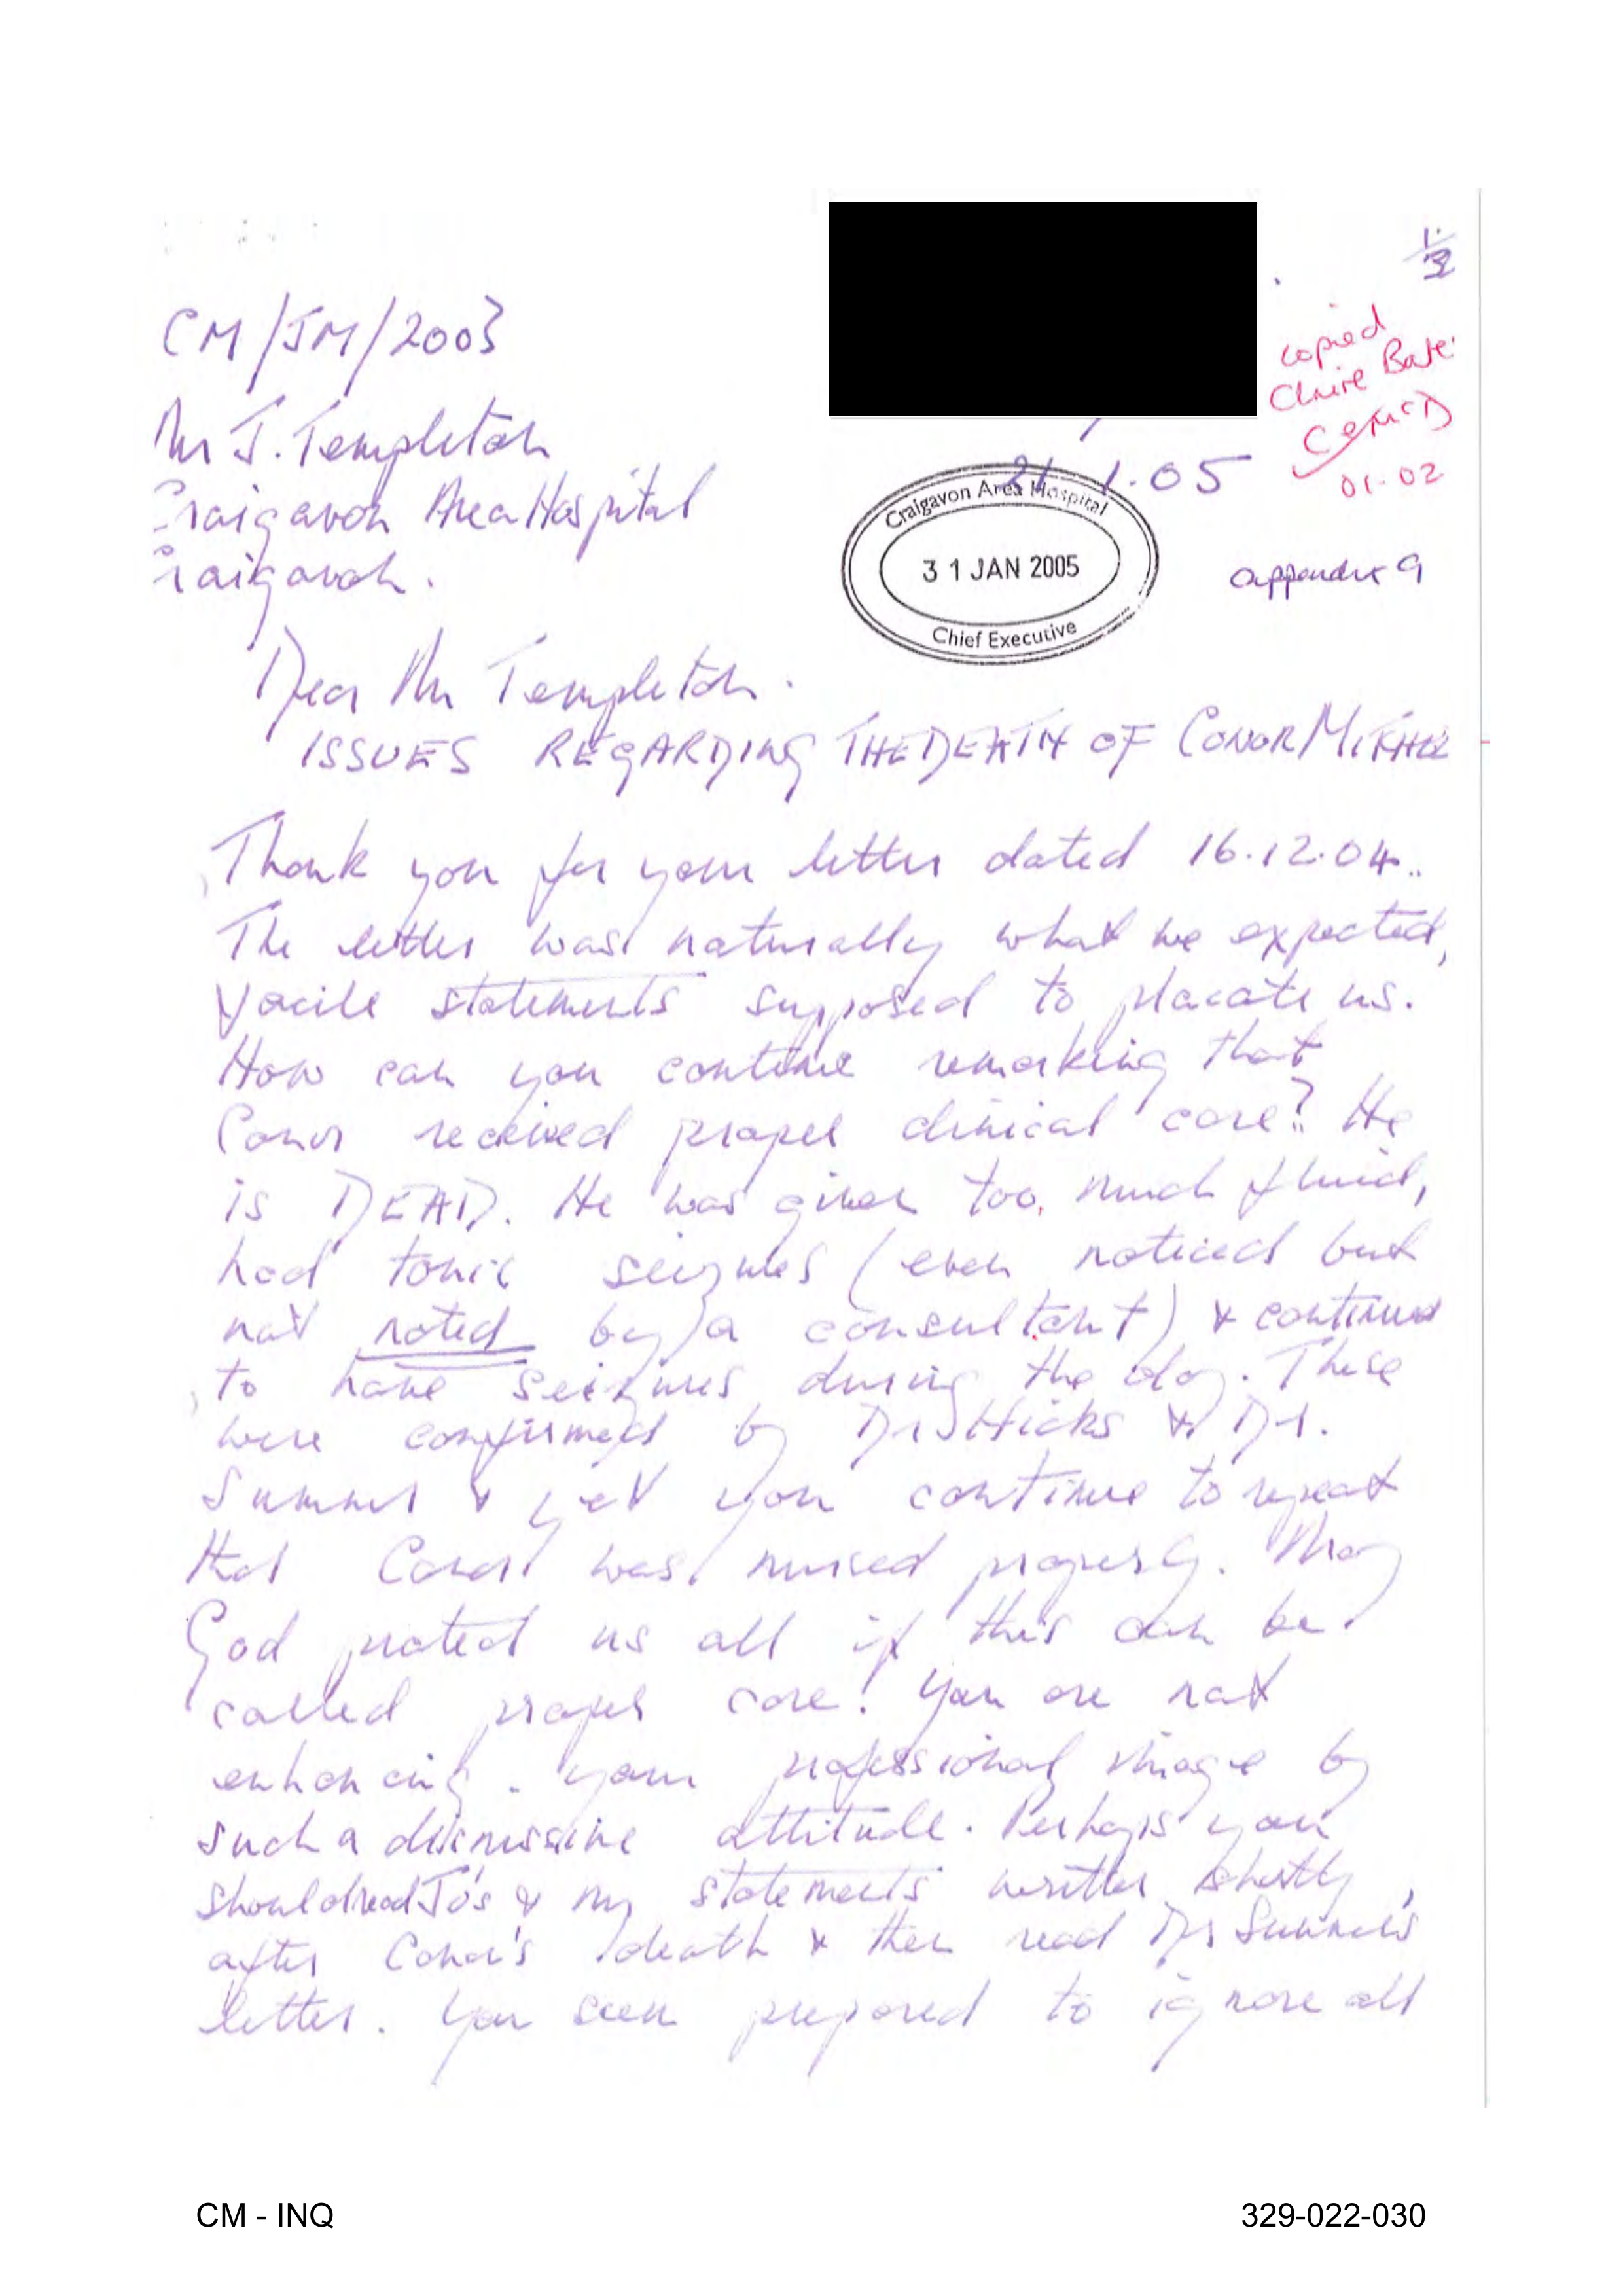 1/3
CM/JM/2003
copied
Claire Bate
01-02
Mr J. Templeton
21.1.05
Craigavon Area Hospital
Craigavon.
Craigavon Area Hospital
31 JAN 2005
Chief Executive
appendix 9
Dear Mr Templeton.
ISSUES REGARDING THE DEATH OF CONOR MITCHELL
Thank you for your letter dated 16.12.04..
The letter was naturally what we expected,
facile statements supposed to placate us.
How can you continue remarking that
Conor received proper clinical care? He
is DEAD. He was given too much fluid,
had tonic seizures (even noticed but
not noted by a consultant) & continued
to have seizures during the day. These
were confirmed by Dr Hicks & Dr.
Sumner & yet you continue to repeat
that Conor was nursed properly. May
God protect us all if this can be
called proper care! You are not
enhancing your professional image by
such a dismissive attitude. Perhaps you
should read Jo's & my statements written shortly
after Conor's death & then read Dr Sumner's
letter. You seem prepared to ignore all
CM - INQ
329-022-030